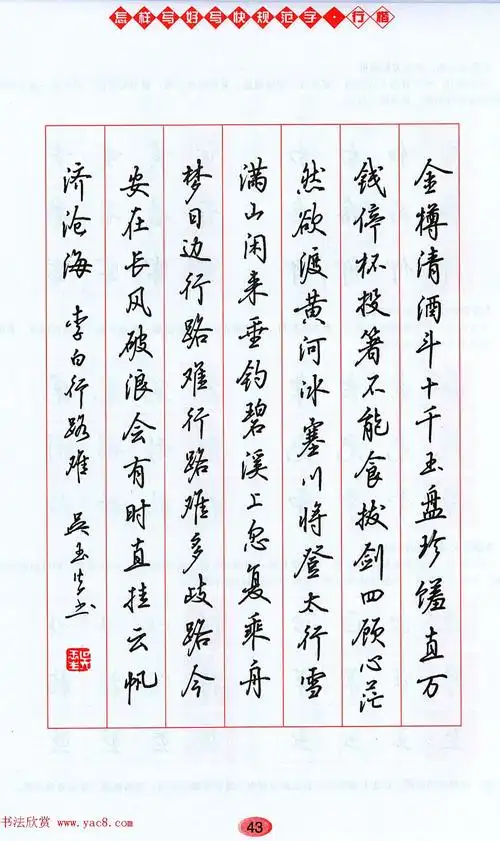 怎样写好写快规范字·行楷
金樽清酒斗十千玉盘珍馐直万
钱停杯投箸不能食拔剑四顾心茫
然欲渡黄河冰塞川将登太行雪
满山闲来垂钓碧溪上忽复乘舟
梦日边行路难行路难多歧路今
安在长风破浪会有时直挂云帆
济沧海 李白行路难 吴玉生书
43
书法欣赏 www.yac8.com